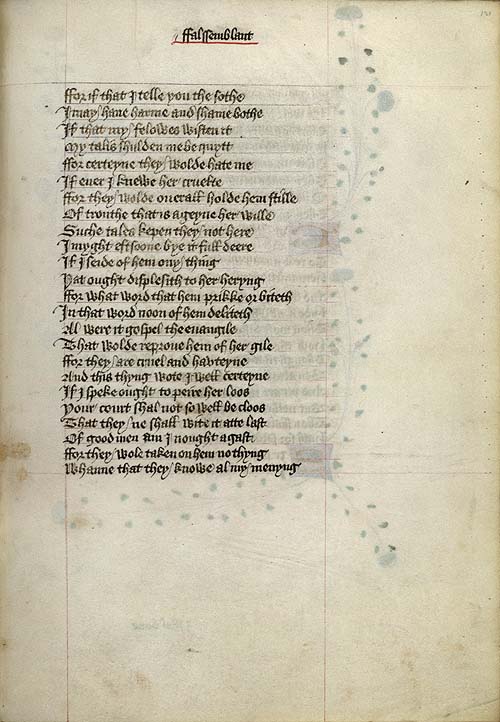 ffalssemblant
ffor if that I telle you the sothe
I may haue harme and shame bothe
If that my felowes wisten it
My talis shulden me be quytt
ffor certeyne they wolde hate me
If euer I knewe her cruelte
ffor they wolde oueralł holde hem stille
Of trouthe that is ageyne her wille
Suche tales kepen they not here
I myght eftsoone bye it full deere
If I seide of hem ony thing
Þat ought displesith to her heryng
ffor what word that hem prikke or biteth
In that word noon of hem deliteth
Al were it gospel the euangile
That wolde reproue hem of her gile
ffor they are cruel and hauteyne
And this thyng wote I welł certeyne
If I speke ought to peire her loos
Your court shal not so welł be cloos
That they ne shall wite it atte last
Of good men am I nought agast
ffor they wole taken on hem nothyng
Whanne that they knowe al my menyng